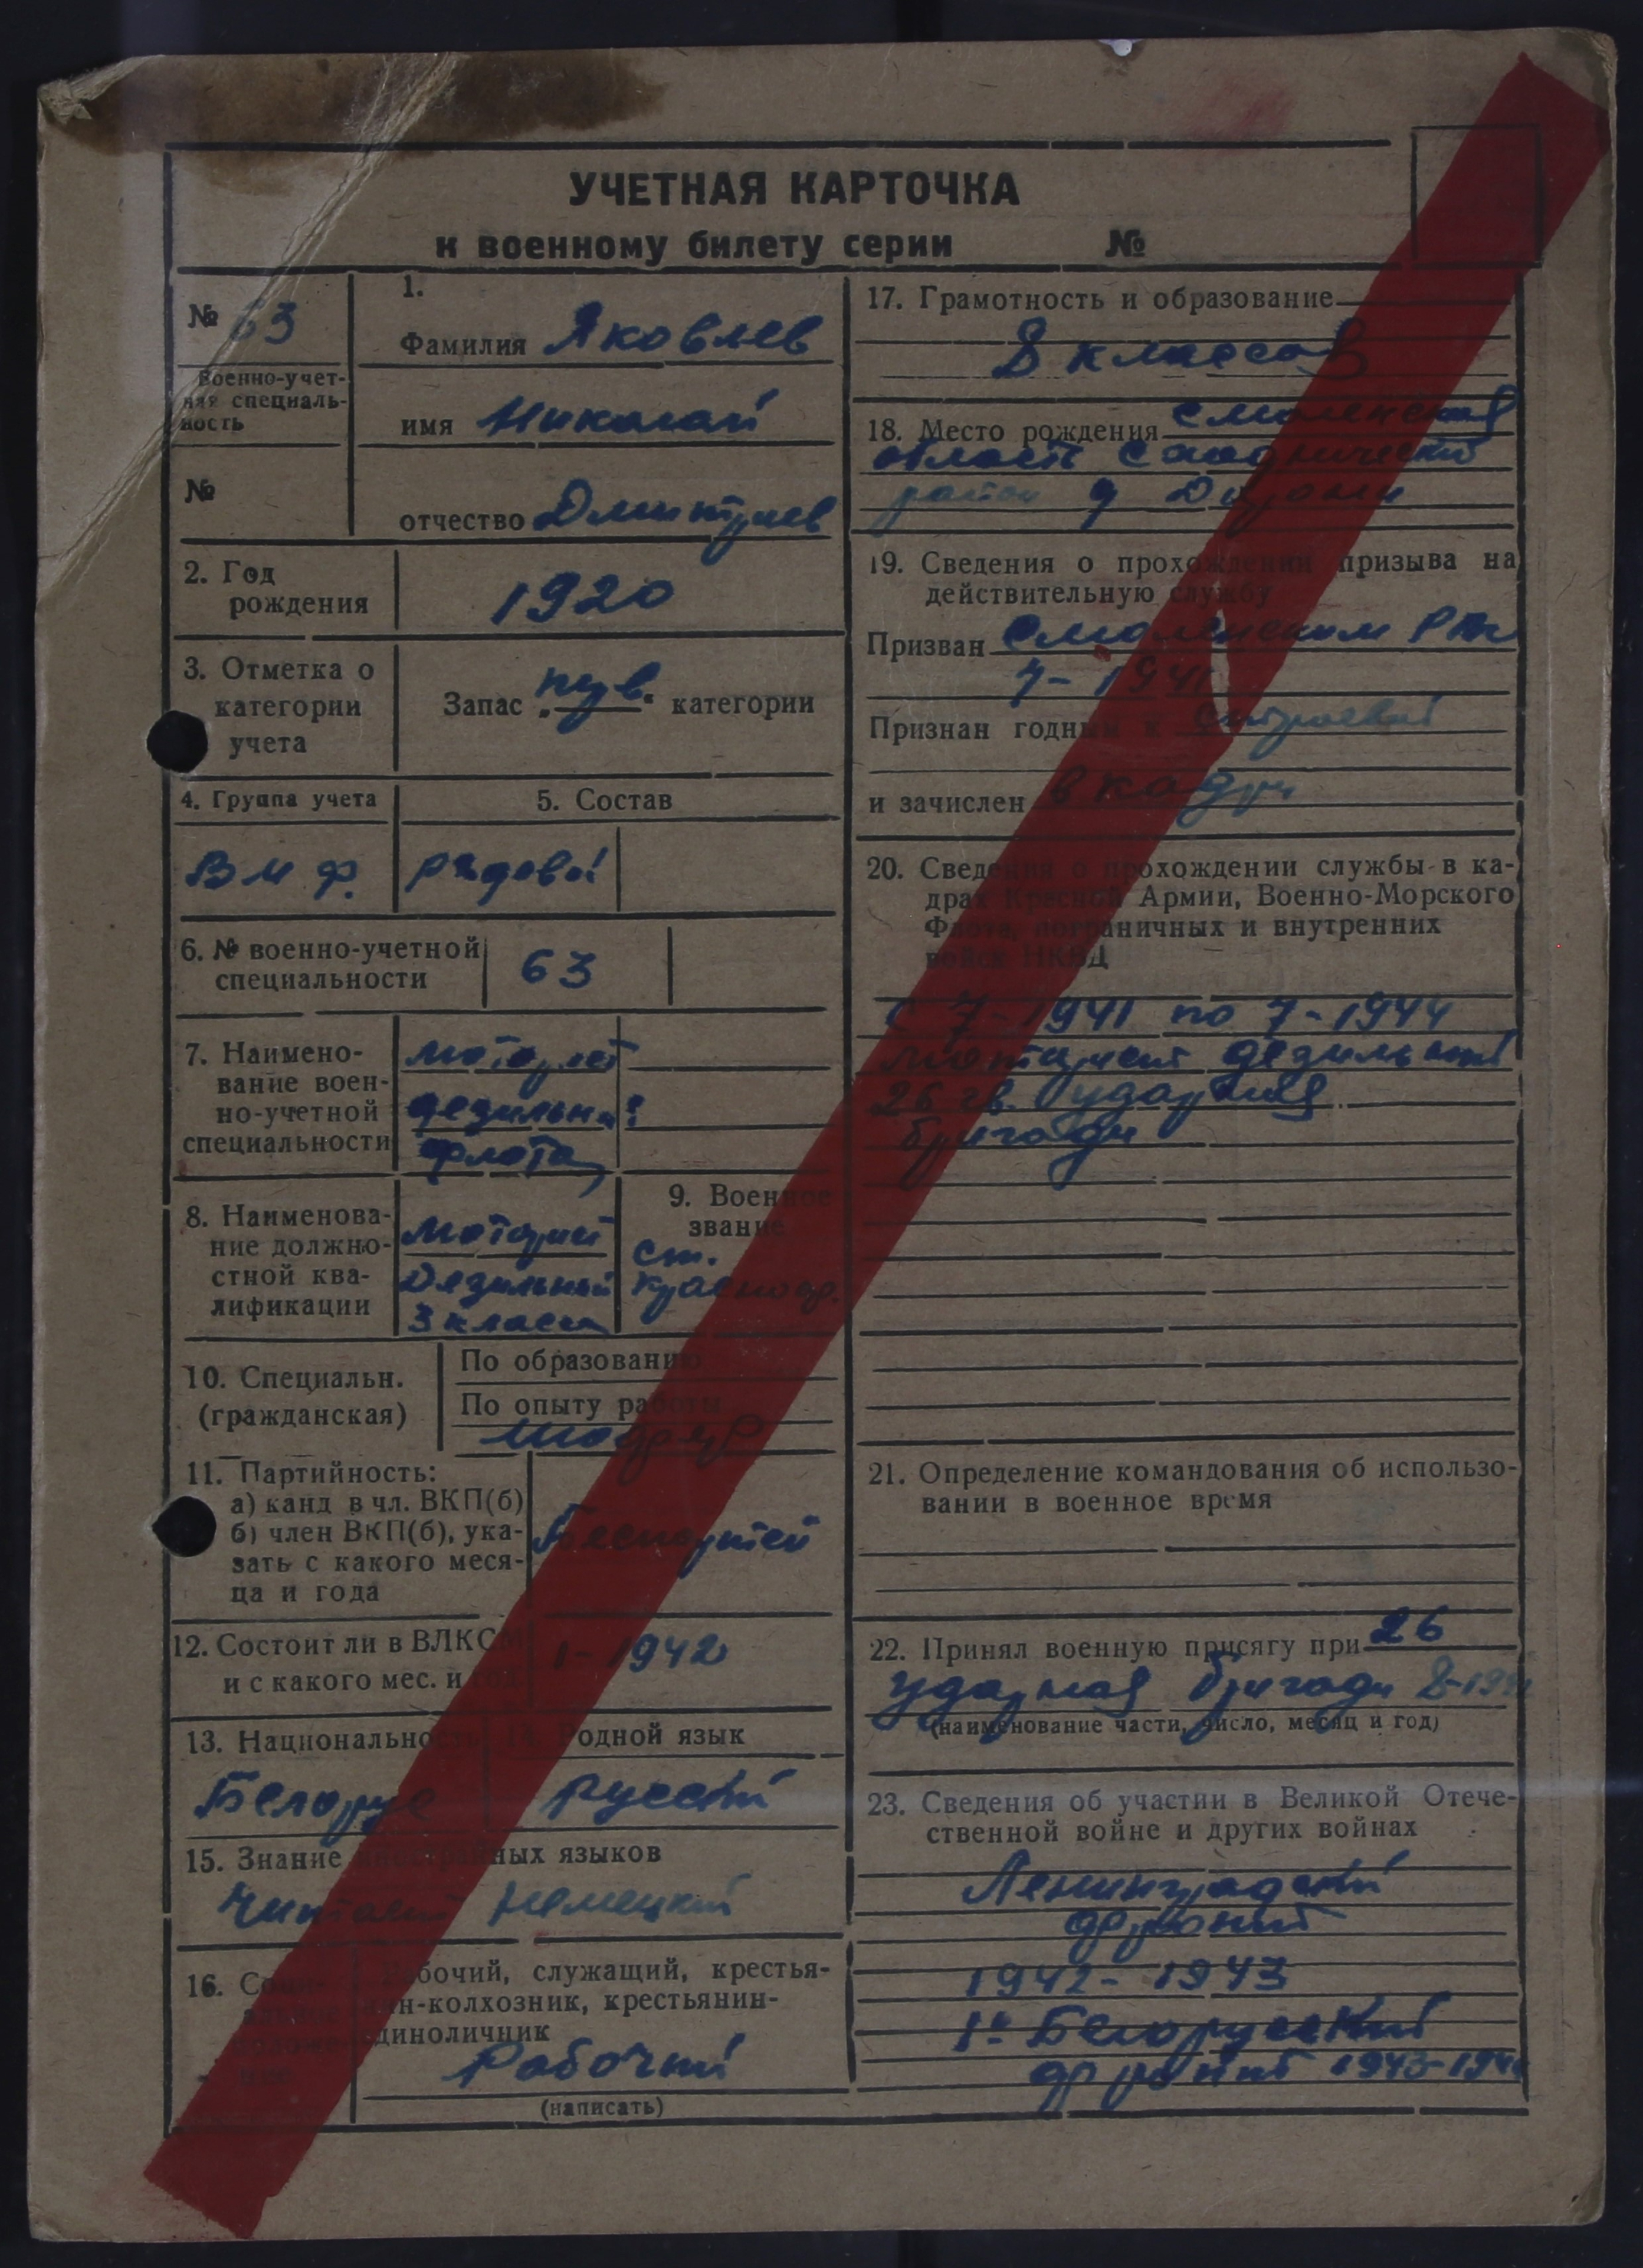 УЧЕТНАЯ КАРТОЧКА
к военному билету серии №
№ 63
Военно-учет-
ная специаль-
ность
№
1.
Фамилия Яковлев
имя Николай
отчество Дмитриев
2. Год
рождения
1920
3. Отметка о
категории
учета
Запас „ “ категории
4. Группа учета
5. Состав
В М Ф.
рядовой
6. № военно-учетной
специальности
63
7. Наимено-
вание воен-
но-учетной
специальности
моторист
дезильн.
флота
8. Наименова-
ние должно-
стной ква-
лификации
моторист
Дезильный
3 класса
9. Военное
звание
ст.
красноф.
10. Специальн.
(гражданская)
По образованию
По опыту работы
11. Партийность:
а) канд в чл. ВКП(б)
б) член ВКП(б), ука-
зать с какого меся-
ца и года
12. Состоит ли в ВЛКСМ
и с какого мес. и год.
1-1942
13. Национальность
Белорус
14. Родной язык
русский
15. Знание иностранных языков
Читает немецкий
16. Соци-
альное
положе-
ние
Рабочий, служащий, крестья-
нин-колхозник, крестьянин-
единоличник
Рабочий
(написать)
17. Грамотность и образование
8 классов
18. Место рождения Смоленская
область
район д
19. Сведения о прохождении призыва на
действительную службу
Призван Смоленским РВк
7-1941
Признан годным к строевой
и зачислен в кадры
20. Сведения о прохождении службы в ка-
драх Красной Армии, Военно-Морского
Флота, пограничных и внутренних
войск НКВД
с 7-1941 по 7-1944
моторист дезильный
26 гв. ударная
бригады
21. Определение командования об использо-
вании в военное время
22. Принял военную присягу при 26
ударная бригады
(наименование части, число, месяц и год)
23. Сведения об участии в Великой Отече-
ственной войне и других войнах
Ленинградский
фронт
1942-1943
1й Белорусский
фронт